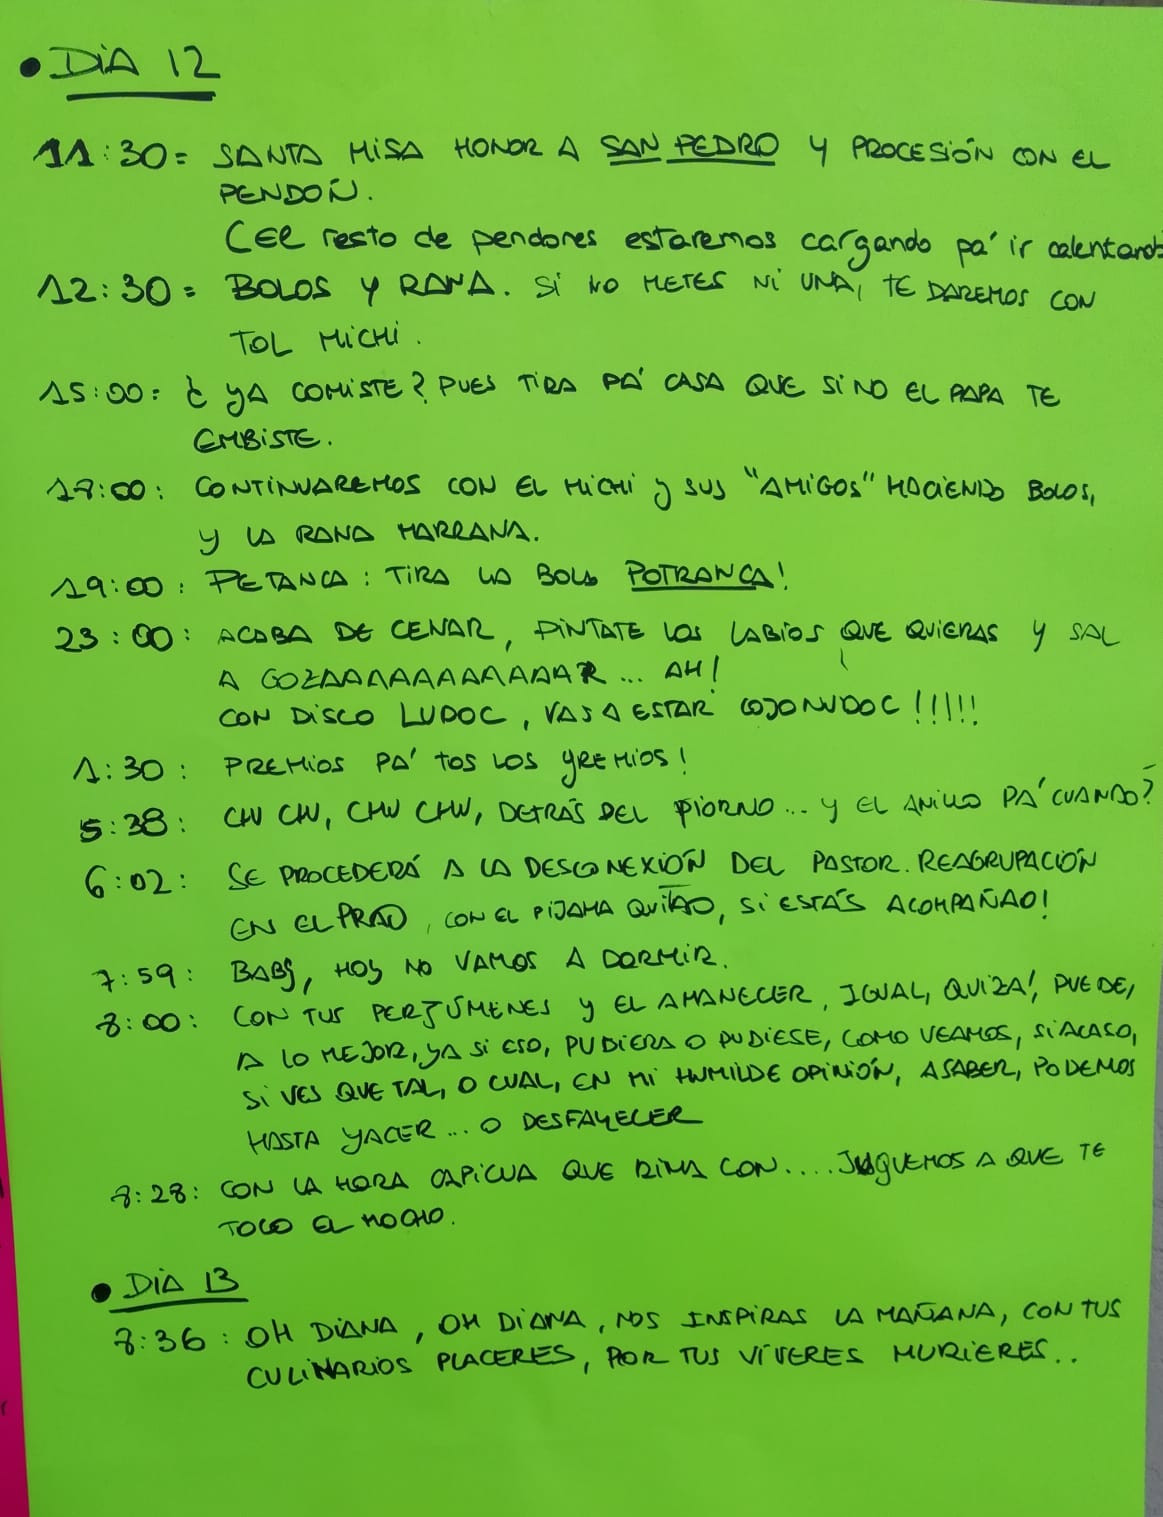 • DÍA 12
11:30= SANTA MISA HONOR A SAN PEDRO Y PROCESIÓN CON EL
PENDÓN.
(El resto de pendones estaremos cargando pa' ir calentando
12:30= BOLOS Y RANA. SI NO METES NI UNA, TE DAREMOS CON
TOL MICHI.
15:00: ¿YA COMISTE? PUES TIRA PA' CASA QUE SI NO EL PAPA TE
EMBISTE.
18:00: CONTINUAREMOS CON EL MICHI y SUS "AMIGOS" HACIENDO BOLOS,
y LA RANA MARRANA.
19:00: PETANCA: TIRA LA BOLA POTRANCA!
23:00: ACABA DE CENAR, PÍNTATE LOS LABIOS QUE QUIERAS Y SAL
A GOZAAAAAAAAAAAAAR... AH!
CON DISCO LUDOC, VAS A ESTAR COJONUDOC!!!!!
1:30: PREMIOS PA' TOS LOS GREMIOS!
5:38: CHU CHU, CHU CHU, DETRÁS DEL PIORNO... Y EL ANILLO PA' CUANDO?
6:02: SE PROCEDERÁ A LA DESCONEXIÓN DEL PASTOR. REAGRUPACIÓN
EN EL PRAO, CON EL PIJAMA QUITAO, SI ESTÁS ACOMPAÑAO!
7:59: BABY, HOY NO VAMOS A DORMIR.
8:00: CON TUS PERFÚMENES y EL AMANECER, IGUAL, QUIZÁ, PUEDE,
A LO MEJOR, YA SI ESO, PUDIERA O PUDIESE, COMO VEAMOS, SI ACASO,
SI VES QUE TAL, O CUAL, EN MI HUMILDE OPINIÓN, A SABER, PODEMOS
HASTA YACER... O DESFAYECER
8:28: CON LA HORA CAPICUA QUE RIMA CON.... JUGUEMOS A QUE TE
TOCO EL MOCHO.
• DÍA 13
8:36: OH DIANA, OH DIANA, NOS INSPIRAS LA MAÑANA, CON TUS
CULINARIOS PLACERES, POR TUS VÍVERES MURIERES..